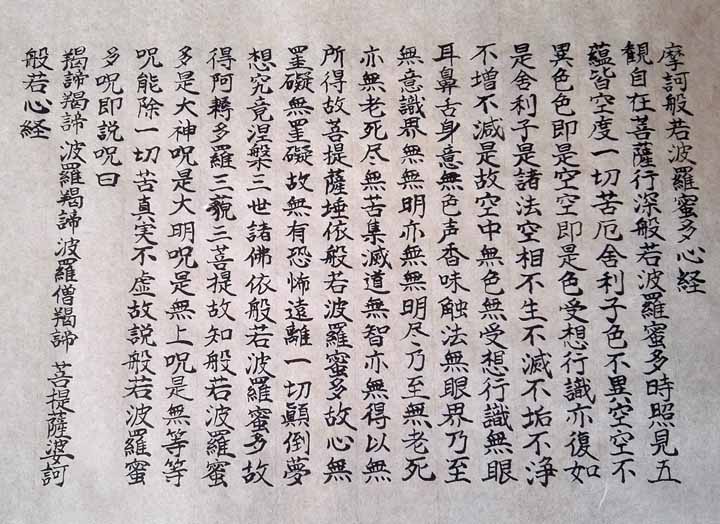 摩訶般若波羅蜜多心経
観自在菩薩行深般若波羅蜜多時照見五
蘊皆空度一切苦厄舎利子色不異空空不
異色色即是空空即是色受想行識亦復如
是舎利子是諸法空相不生不滅不垢不浄
不増不減是故空中無色無受想行識無眼
耳鼻舌身意無色声香味触法無眼界乃至
無意識界無無明亦無無明尽乃至無老死
亦無老死尽無苦集滅道無智亦無得以無
所得故菩提薩埵依般若波羅蜜多故心無
罣礙無罣礙故無有恐怖遠離一切顛倒夢
想究竟涅槃三世諸佛依般若波羅蜜多故
得阿耨多羅三藐三菩提故知般若波羅蜜
多是大神呪是大明呪是無上呪是無等等
呪能除一切苦真実不虚故説般若波羅蜜
多呪即説呪曰
羯諦羯諦 波羅羯諦 波羅僧羯諦 菩提薩婆訶
般若心経